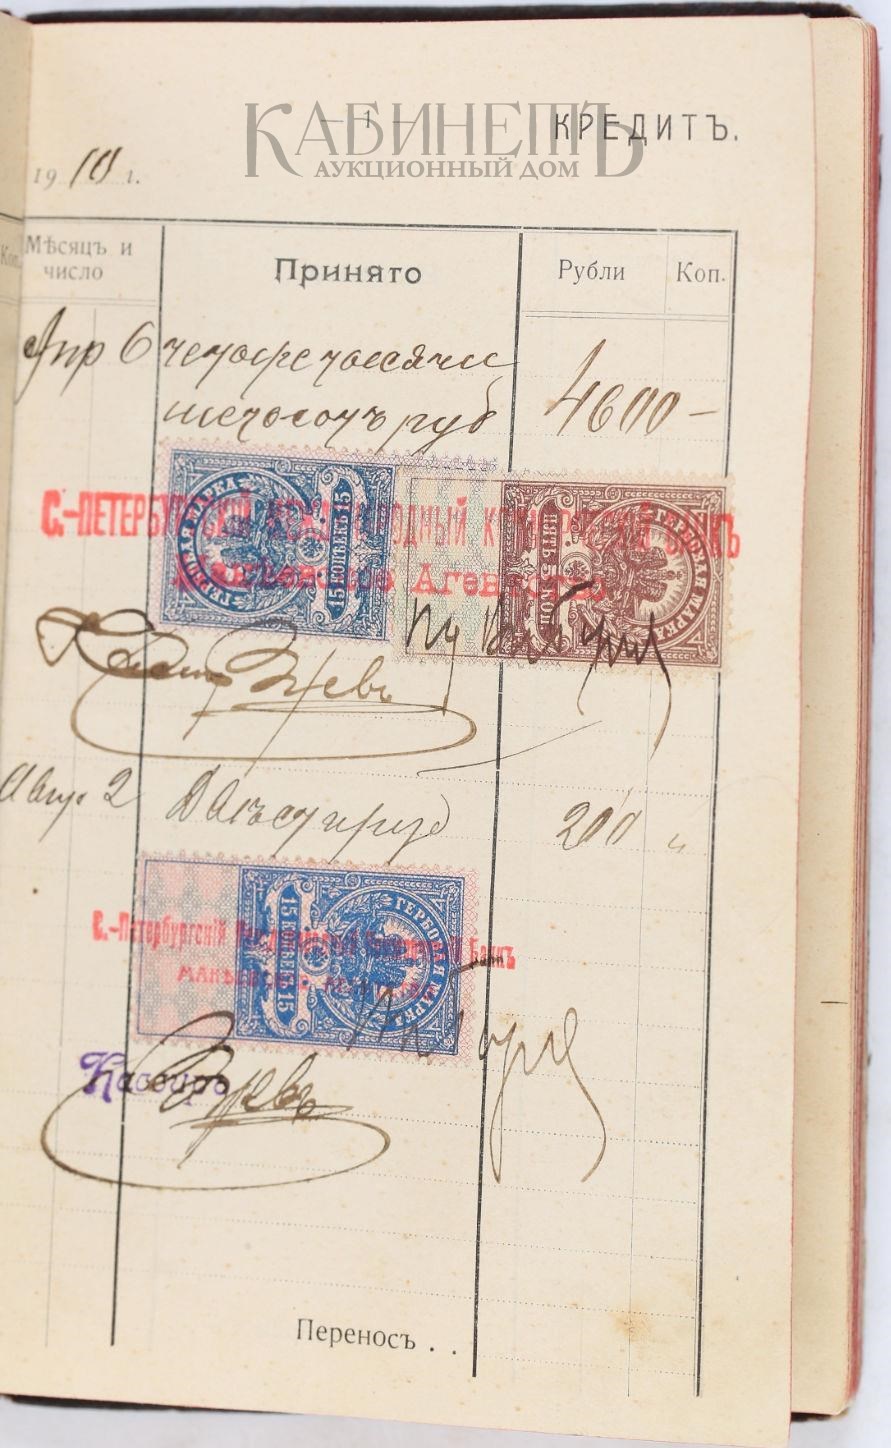 КАБИНЕТЪ
АУКЦИОННЫЙ ДОМ
— 1 —
КРЕДИТЪ.
1910 г.
Коп.
Мѣсяцъ и число
Принято
Рубли
Коп.
Апр 6 четыре тысячи
шестьсотъ руб 4600 —
ГЕРБОВАЯ МАРКА
15 КОПѢЕКЪ 15
ПЯТЬ 5 КОП.
ГЕРБОВАЯ МАРКА
С.-ПЕТЕРБУРГСКІЙ МЕЖДУНАРОДНЫЙ КОММЕРЧЕСКІЙ БАНКЪ
Агентство
Авг. 2 Двѣсти руб 200 "
15 КОПѢЕКЪ 15
ГЕРБОВАЯ МАРКА
С.-Петербургскій Международный Коммерческій Банкъ
Кассиръ
Переносъ . .